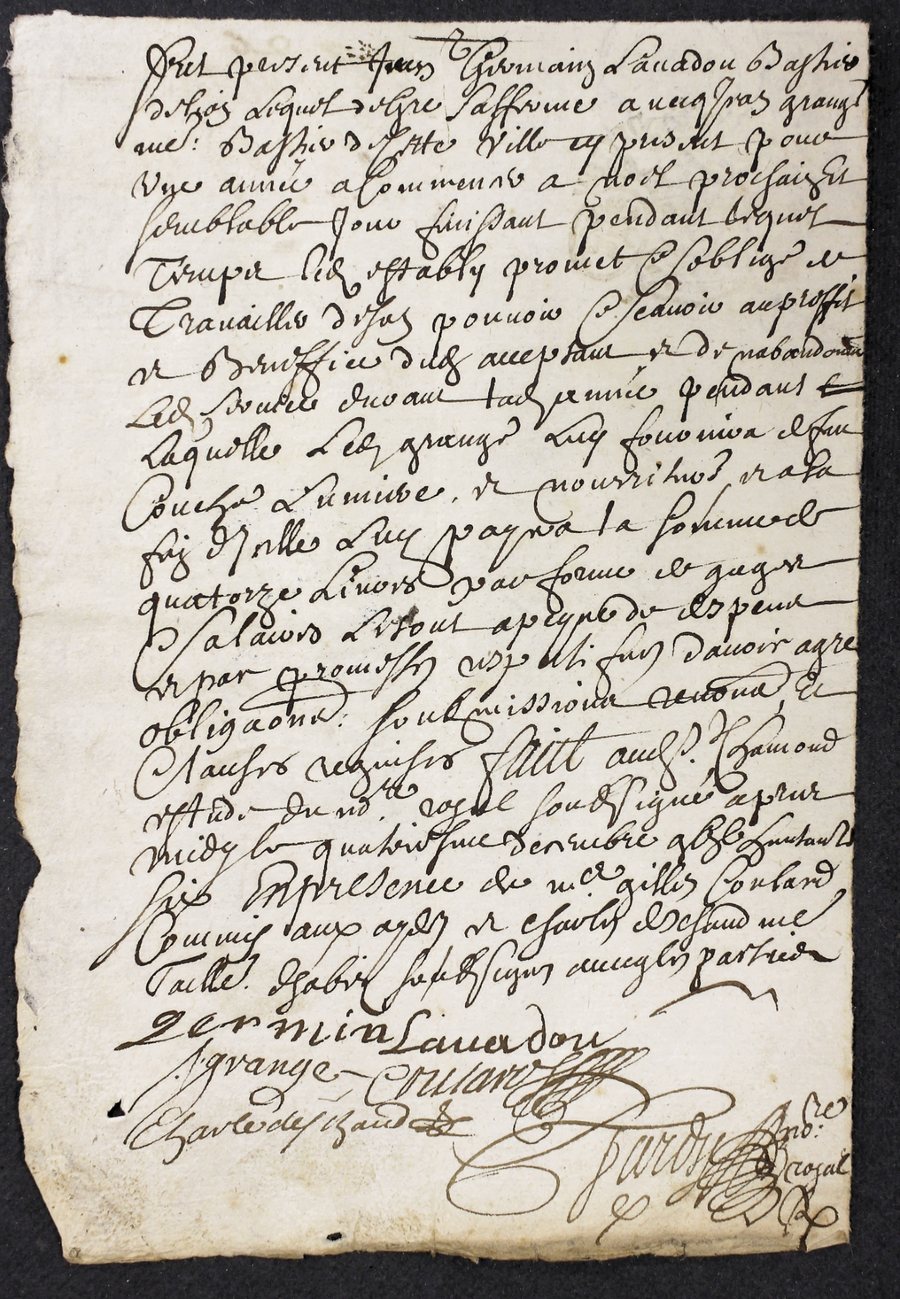 fut present Jean Germain Lavadou Bastier
de Lion Lequel de gre safferme avecq Jean grange
me: Bastier de cette Ville cy present pour
Une année a Commencer a noel prochain Et
semblable Jour finissant pendant lequel
Temps led estably promet & soblige de
Travailler de son pouvoir & scavoir au proffit
et Beneffice dud acceptant et de nabandonner
Led service durant lad année pendant
Laquelle Led grange Luy fournira de feu
Couche Lumiere, et nourriture et a la
fin dicelle Luy payera la somme de
quatorze Livres par forme de gages
& salaires Le tout a peyne de despens
et par promesses respectifves davoir agre
obligaons: soubmissions renons, Et
Clauses requises faict aud St. Chamond
estude du nore. royal soubsigné apres
midy le quatriesme decembre gbje
six En presence de me gilles Coulard
Commis aux aydes et charles deschaud me
Taille. dhabis soubsignes avecq les parties
germin Lavadou
J grange Coulard
Charle deschaud
Tardy nore:
royal